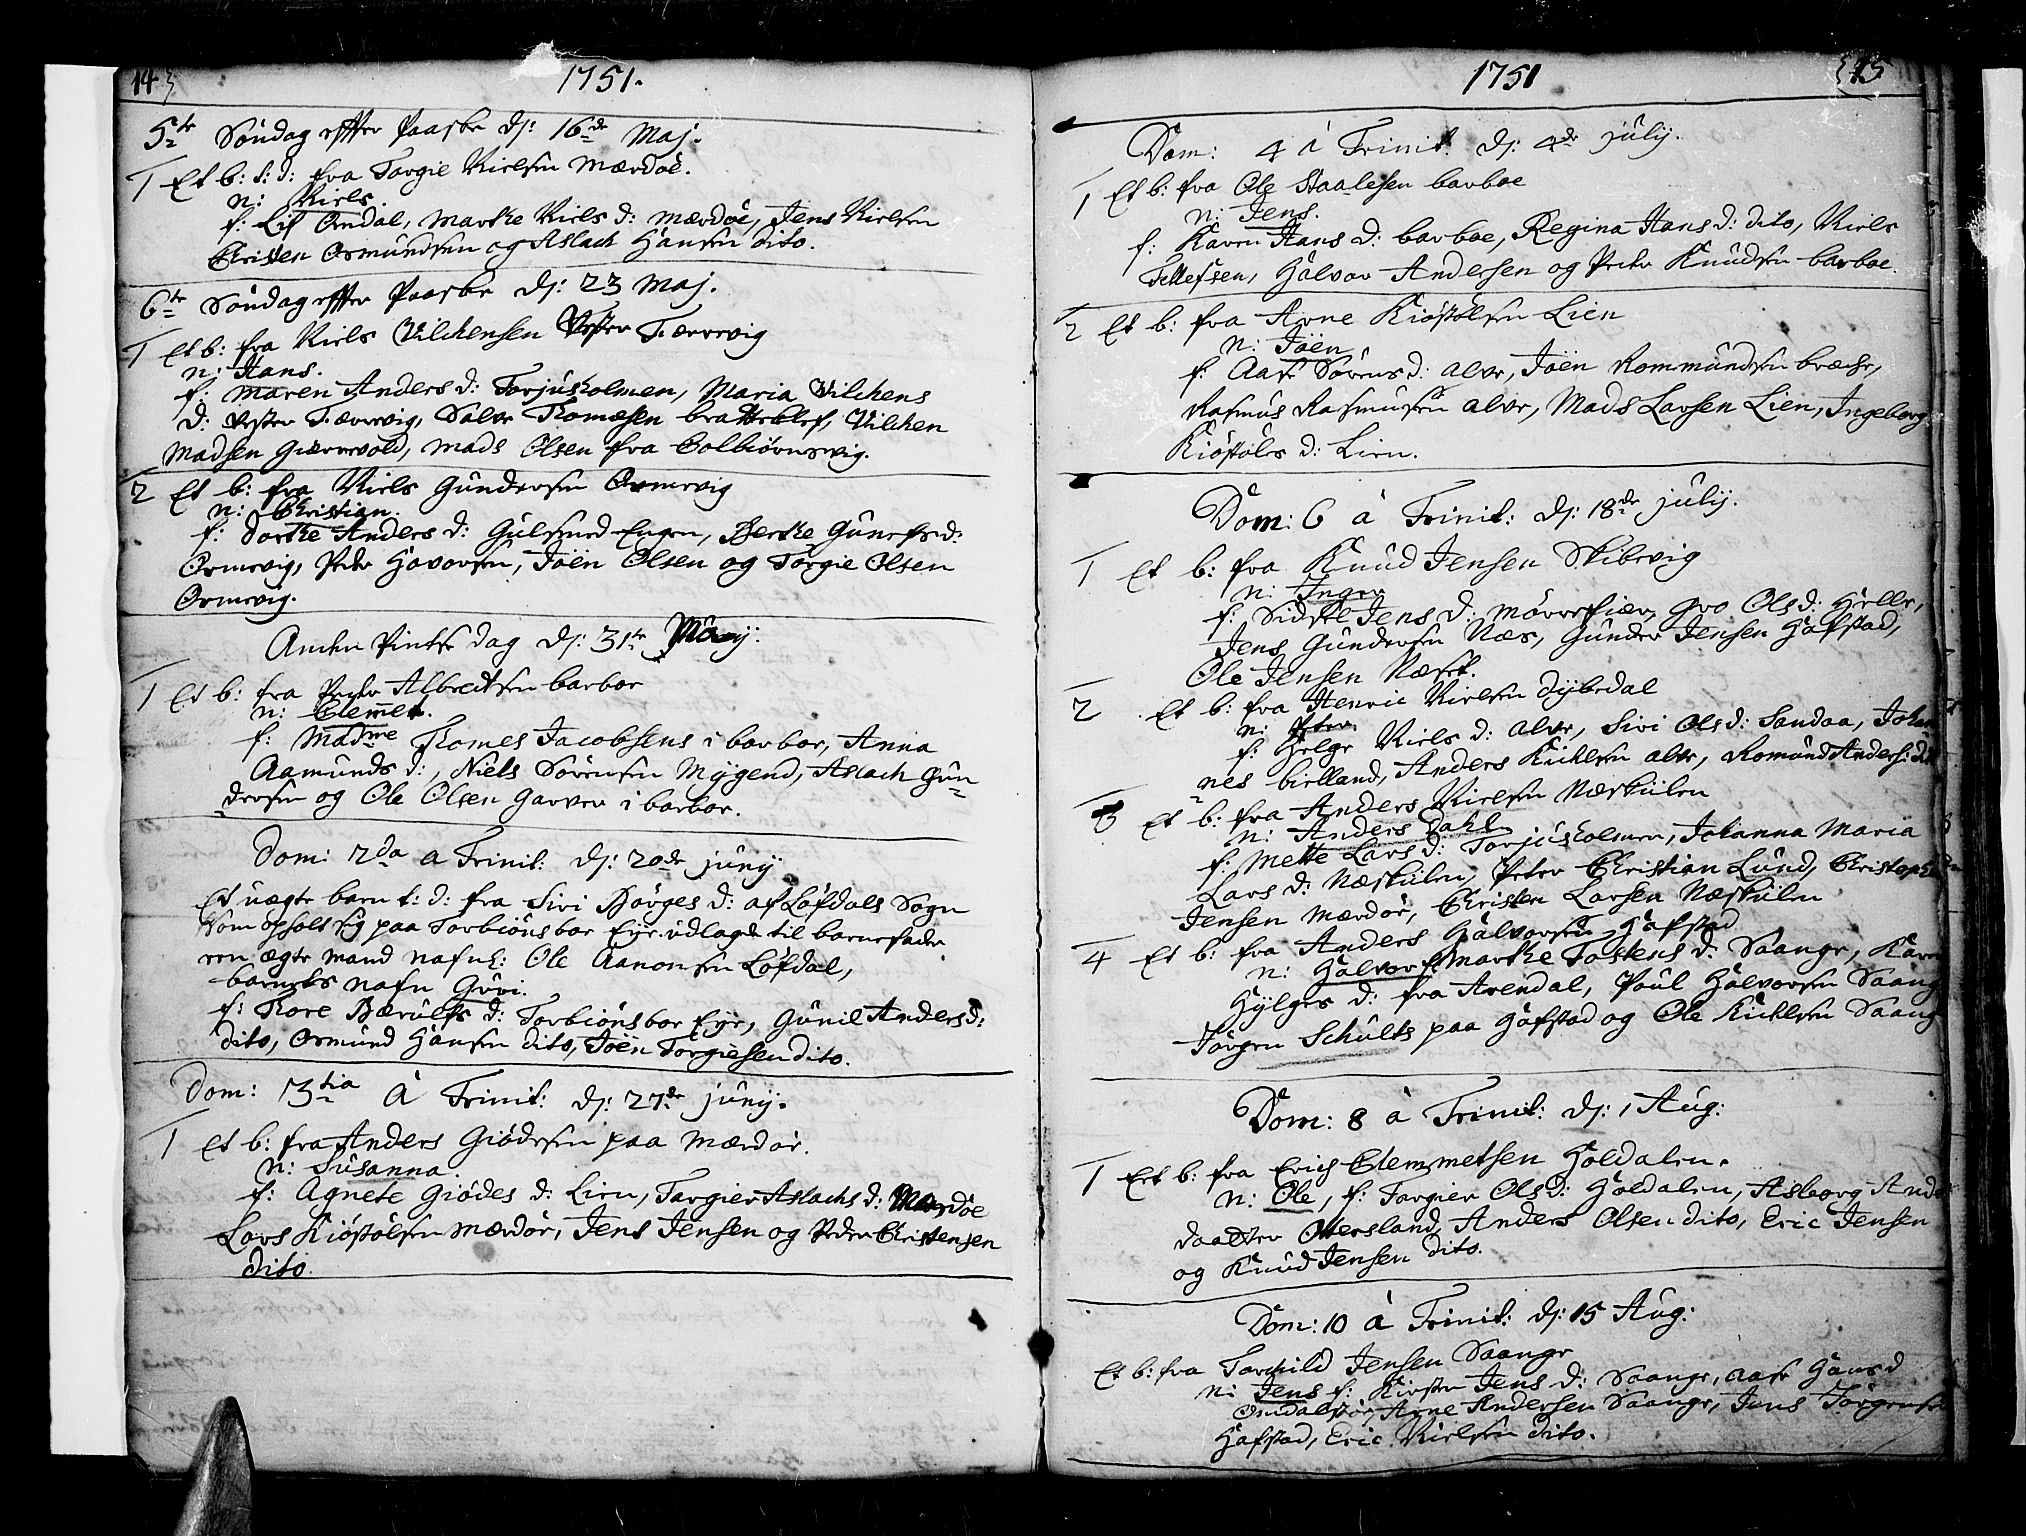 14
1751.
5te Søndag effter Paaske d: 16de Maj.
1 Et b: f: d: fra Torgie Nielsen Mærdøe.
n: Niels.
f: Lis Omdal, Marthe Niels d: Mærdøe, Jens Nielsen
Christen Osmundsen og Aslach Hansen dito.
6te Søndag effter Paaske d: 23 Maj.
1 Et b: fra Niels Vilchensen Vester Tærrevig
n: Hans.
f: Maren Anders d: Torjusholmen, Maria Vilchens
d: Vester Tærrevig, Salve Thomesen bratteklef, Vilchen
Madsen Giærrevold, Mads Olsen fra Colbiørnsvig.
2 Et b: fra Niels Gundersen Ormevig
n: Christian.
f: Dorthe Anders d: Engen, Berthe Gunefs d:
Ormevig, Peder Havorsen, Joen Olsen og Torgie Olsen
Ormevig.
Anden Pintse dag d: 31te Maij:
1 Et b: fra Peder Albredtsen barboe
n: Clemmet.
f: Madme Thomes Jacobsens i barboe, Anna
Aamunds d:, Niels Sørensen Mÿgend, Aslach Gun-
dersen og Ole Olsen Garver i barboe.
Dom: 2da a Trinit: d: 20de junij
Et uægte barn f: d: fra Siri Børges d: af Løfdals Sogn
som opholt sig paa Torbiønsboe Eye. udlagde til barnefader
en ægte mand nafnl: Ole Aanonsen Løfdal,
barnets nafn Guri.
f: Thore Bærulfs d: Torbiønsboe Eye, Gunil Anders d:
dito, Osmund Hansen dito, Joen Torgiesen dito.
Dom: 3tia à Trinit: d: 27de junij.
1 Et b: fra Anders Giødesen paa Mærdøe.
n: Susanna.
f: Agnete Giødes d: Lien, Torgier Aslachs d: Mærdøe
Lars Kiøstolsen Mærdøe, Jens Jensen og Peder Christensen
dito.
1751
15
Dom: 4 à Trinit. d: 4de julij.
1 Et b: fra Ole Staalesen barboe
n: Jens.
f: Karen Hans d: barboe, Regina Hans d: dito, Niels
Tellefsen, Halvor Andersen og Peder Knudsen barboe.
2 Et b: fra Arne Kiøstolsen Lien
n: Joen
f: Aase Sørens d: alve, Joen Rommundsen bræche,
Rasmus Rasmusen alve, Mads Larsen Lien, Ingeborg
Kiøstols d: Lien.
Dom: 6 à Trinit: d: 18de julij.
1 Et b: fra Knud Jensen Skibevig
n: Inger
f: Sidsel Jens d: Mørrefiær, Gro Ols d: Helle,
Jens Gundersen Næs, Gunder Jensen Hafstad,
Ole Jensen Næset.
2 Et b: fra Henric Nielsen Dybedal
n: Peter
f: Helge Niels d: alve, Siri Ols d: Sandaa, Johan
nes bielland, Anders Kichlsen alve, Romund Anders:
3 Et b: fra Anders Nielsen Næskilen
n: Anders Dahl
f: Mette Lars d: Torjusholmen, Johanna Maria
Lars d: Næskilen, Peter Christian Lund, Christopher
Jensen Mærdøe, Christen Larsen Næskilen
4 Et b: fra Anders Halvorsen Hafstad
n: Halvor f: Marthe Tostens d: Saange, Karen
Hylges d: fra Arendal, Poul Halvorsen Saang
Jørgen Schults paa Hafstad og Ole Kichlsen Saang
Dom: 8 à Trinit: d: 1 Aug:
1 Et b: fra Erich Clemmetsen Holdalen.
n: Ole, f: Torgier Ols d: Holdalen, Asborg Anders
daatter Ottersland, Anders Olsen dito, Eric Jensen
og Knud Jensen dito.
Dom: 10 à Trinit: d: 15 Aug:
Et b: fra Torchild Jensen Saange
n: Jens f: Kirsten Jens d: Saange, Aase Hans d
Omdalsøen, Arne Andersen Saange, Jens Jørgensen
Hafstad, Eric Nielsen dito.